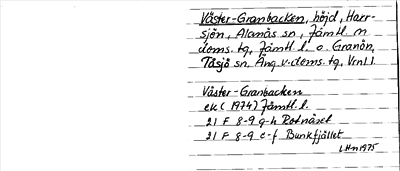 Väster-Granbacken, höjd, Harr-
sjön, Alanäs sn, Jämtl n
doms. tg, Jämtl l. o Granön,
Tåsjö sn. Äng v. doms. tg, Vrnl l.
Väster-Granbacken
ek (1974) Jämtl. l.
21 F 8-9 g-h Rotnäset
21 F 8-9 e-f Bunkfjället
LHn 1975